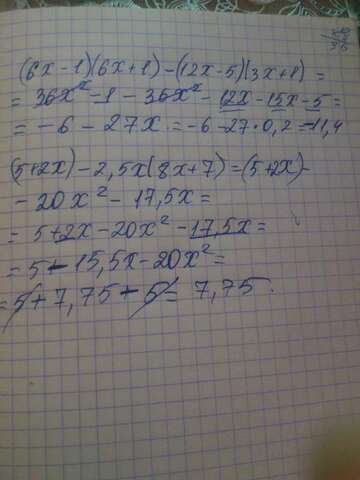 (6x-1)(6x+1)-(12x-5)(3x+1)=
=36x²-1-36x²-12x-15x-5=
=-6-27x=-6-27·0,2=-11,4
(5+2x)-2,5x(8x+7)=(5+2x)-
-20x²-17,5x=
=5+2x-20x²-17,5x=
=5-15,5x-20x²=
=5+7,75+5=7,75.